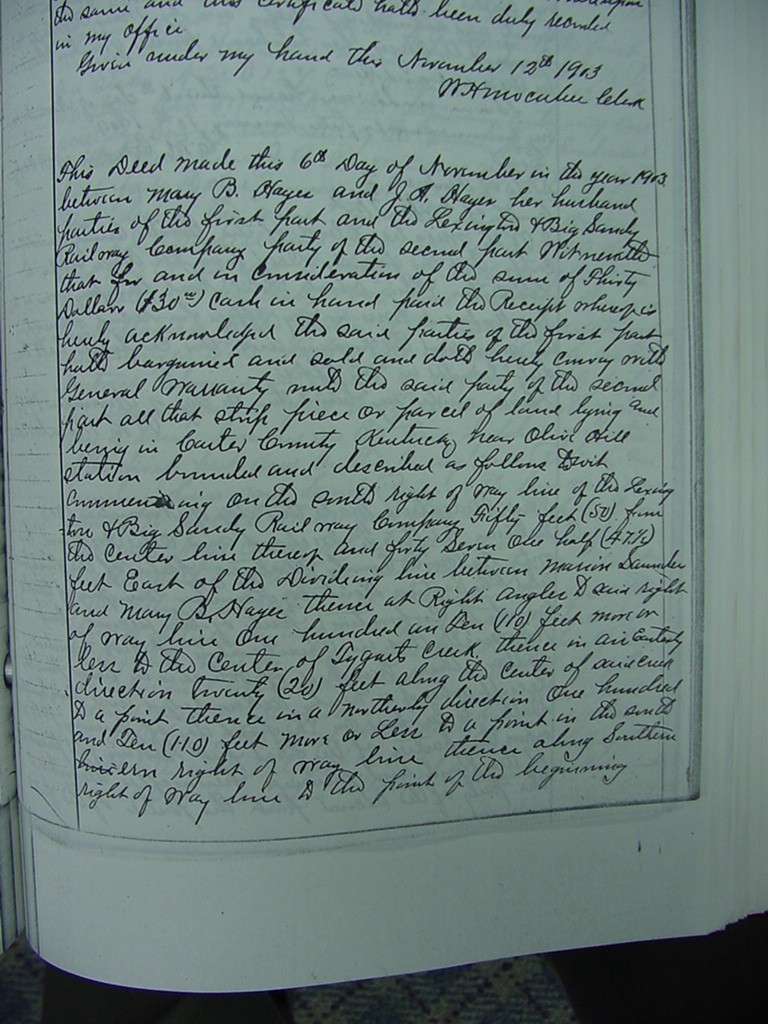 the same and this certificate hath been duly recorded
in my office
Given under my hand this November 12th 1903
Clerk
This Deed made this 6th Day of November in the year 1903
between Mary B. Hayes and J. A. Hayes her husband
parties of the first part and the Lexington & Big Sandy
Railway Company party of the second part Witnesseth
that for and in consideration of the sum of Thirty
Dollars ($30.00) cash in hand paid the Receipt whereof is
hereby acknowledged the said parties of the first part
hath bargained and sold and doth hereby convey with
General Warranty unto the said party of the second
part all that strip piece or parcel of land lying and
being in Carter County Kentucky near Olive Hill
station bounded and described as follows to wit
Commencing on the south right of way line of the Lexing
ton & Big Sandy Railway Company Fifty feet (50) from
the center line thereof and forty Seven One half (47½)
feet East of the Dividing line between Marion Saunder
and Mary B. Hayes thence at Right angles to said right
of way line One hundred an Ten (110) feet more or
less to the center of Tygarts Creek thence in an Easterly
direction twenty (20) feet along the center of said creek
to a point thence in a northerly direction One hundred
and Ten (110) feet more or Less to a point in the south
ern right of way line thence along Southern
right of way line to the point of the beginning